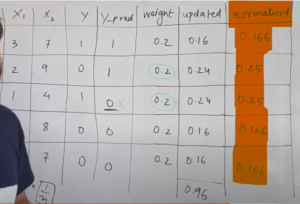 X₁ X₂ Y Y_pred weight updated normalized
3 7 1 1 0.2 0.16 0.166
2 9 0 1 0.2 0.24 0.25
1 4 1 0 x 0.2 0.24 0.25
8 0 0 0.2 0.16 0.166
7 0 0 0.2 0.16 0.166
0.96